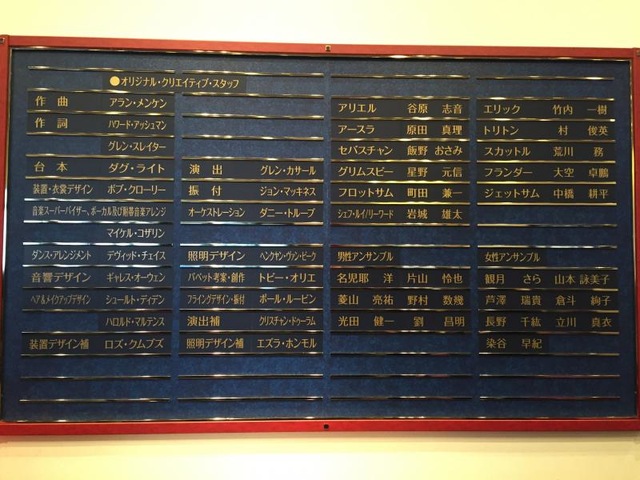 ●オリジナル・クリエイティブ・スタッフ
作曲 アラン・メンケン
作詞 ハワード・アッシュマン
グレン・スレイター
台本 ダグ・ライト
装置・衣裳デザイン ボブ・クローリー
音楽スーパーバイザー、ボーカル及び付帯音楽アレンジ
マイケル・コザリン
ダンス・アレンジメント デヴィッド・チェイス
音響デザイン ギャレス・オーウェン
ヘア&メイクアップデザイン シュールト・ディデン
ハロルド・マルテンス
装置デザイン補 ロズ・クムブズ
演出 グレン・カサール
振付 ジョン・マッキネス
オーケストレーション ダニー・トループ
照明デザイン ヘンケヤン・ヴァン・ビーク
パペット考案・創作 トビー・オリエ
フライングデザイン・振付 ポール・ルービン
演出補 クリスチャン・ドゥーラム
照明デザイン補 エズラ・ホンモル
アリエル 谷原 志音
アースラ 原田 真理
セバスチャン 飯野 おさみ
グリムスビー 星野 元信
フロットサム 町田 兼一
シェフ・ルイ/リーワード 岩城 雄太
男性アンサンブル
名児耶 洋 片山 怜也
菱山 亮祐 野村 数幾
光田 健一 劉 昌明
エリック 竹内 一樹
トリトン 村 俊英
スカットル 荒川 務
フランダー 大空 卓鵬
ジェットサム 中橋 耕平
女性アンサンブル
観月 さら 山本 詠美子
芦澤 瑞貴 倉斗 絢子
長野 千紘 立川 真衣
染谷 早紀